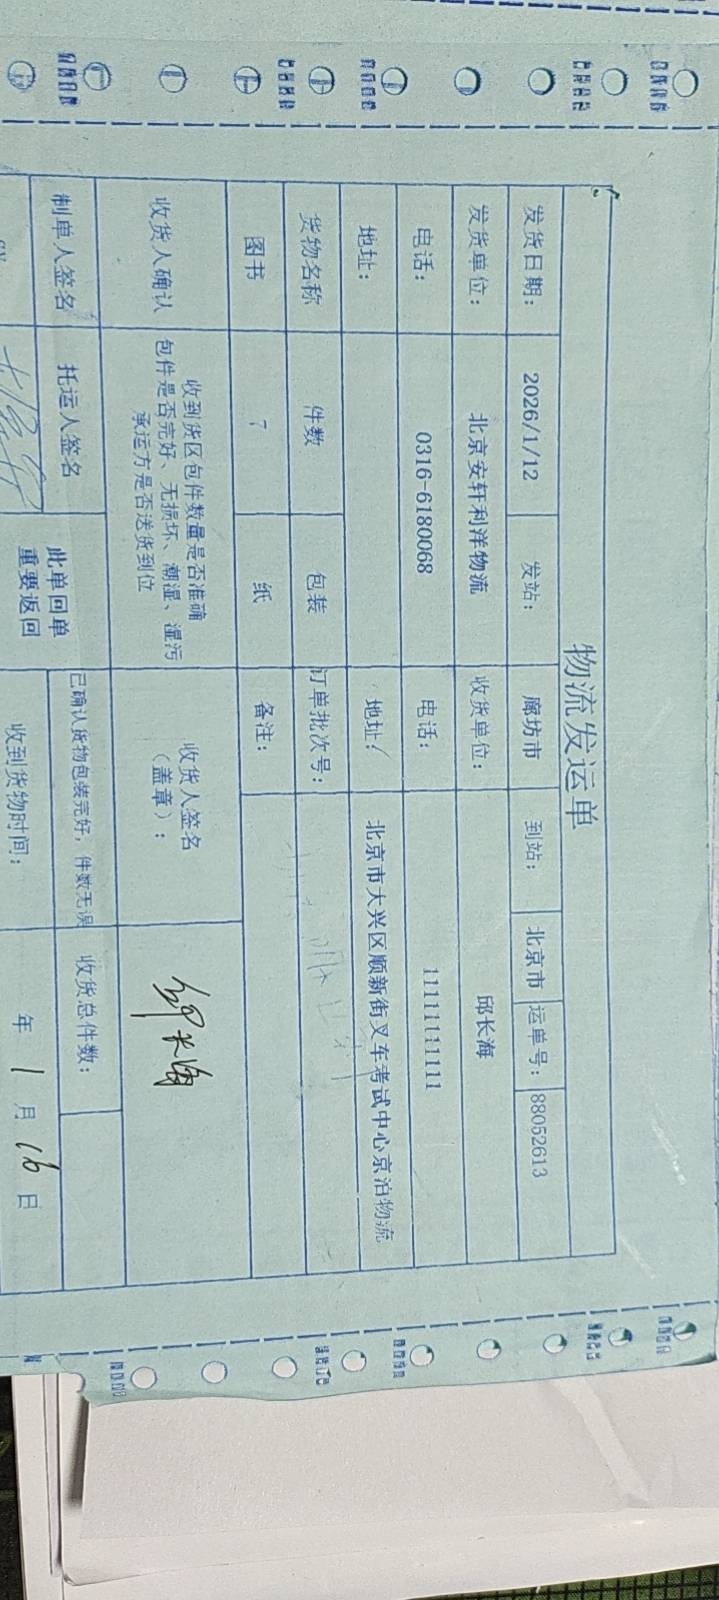 物流发运单
发货日期： 2026/1/12 发站： 廊坊市 到站： 北京市 运单号： 88052613
发货单位： 北京安轩利洋物流 收货单位： 邱长海
电话： 0316-6180068 电话： 11111111111
地址： 地址/ 北京市大兴区顺新街叉车考试中心京泊物流
货物名称 件数 包装 订单批次号：
图书 7 纸 备注：
收货人确认 收到货区包件数量是否准确
包件是否完好、无损坏、潮湿、湿污
承运方是否送货到位
收货人签名
（盖章）： 邱长海
制单人签名 托运人签名 此单回单
重要返回
已确认货物包装完好，件数无误 收货总件数：
收到货物时间： 年 1 月 16 日